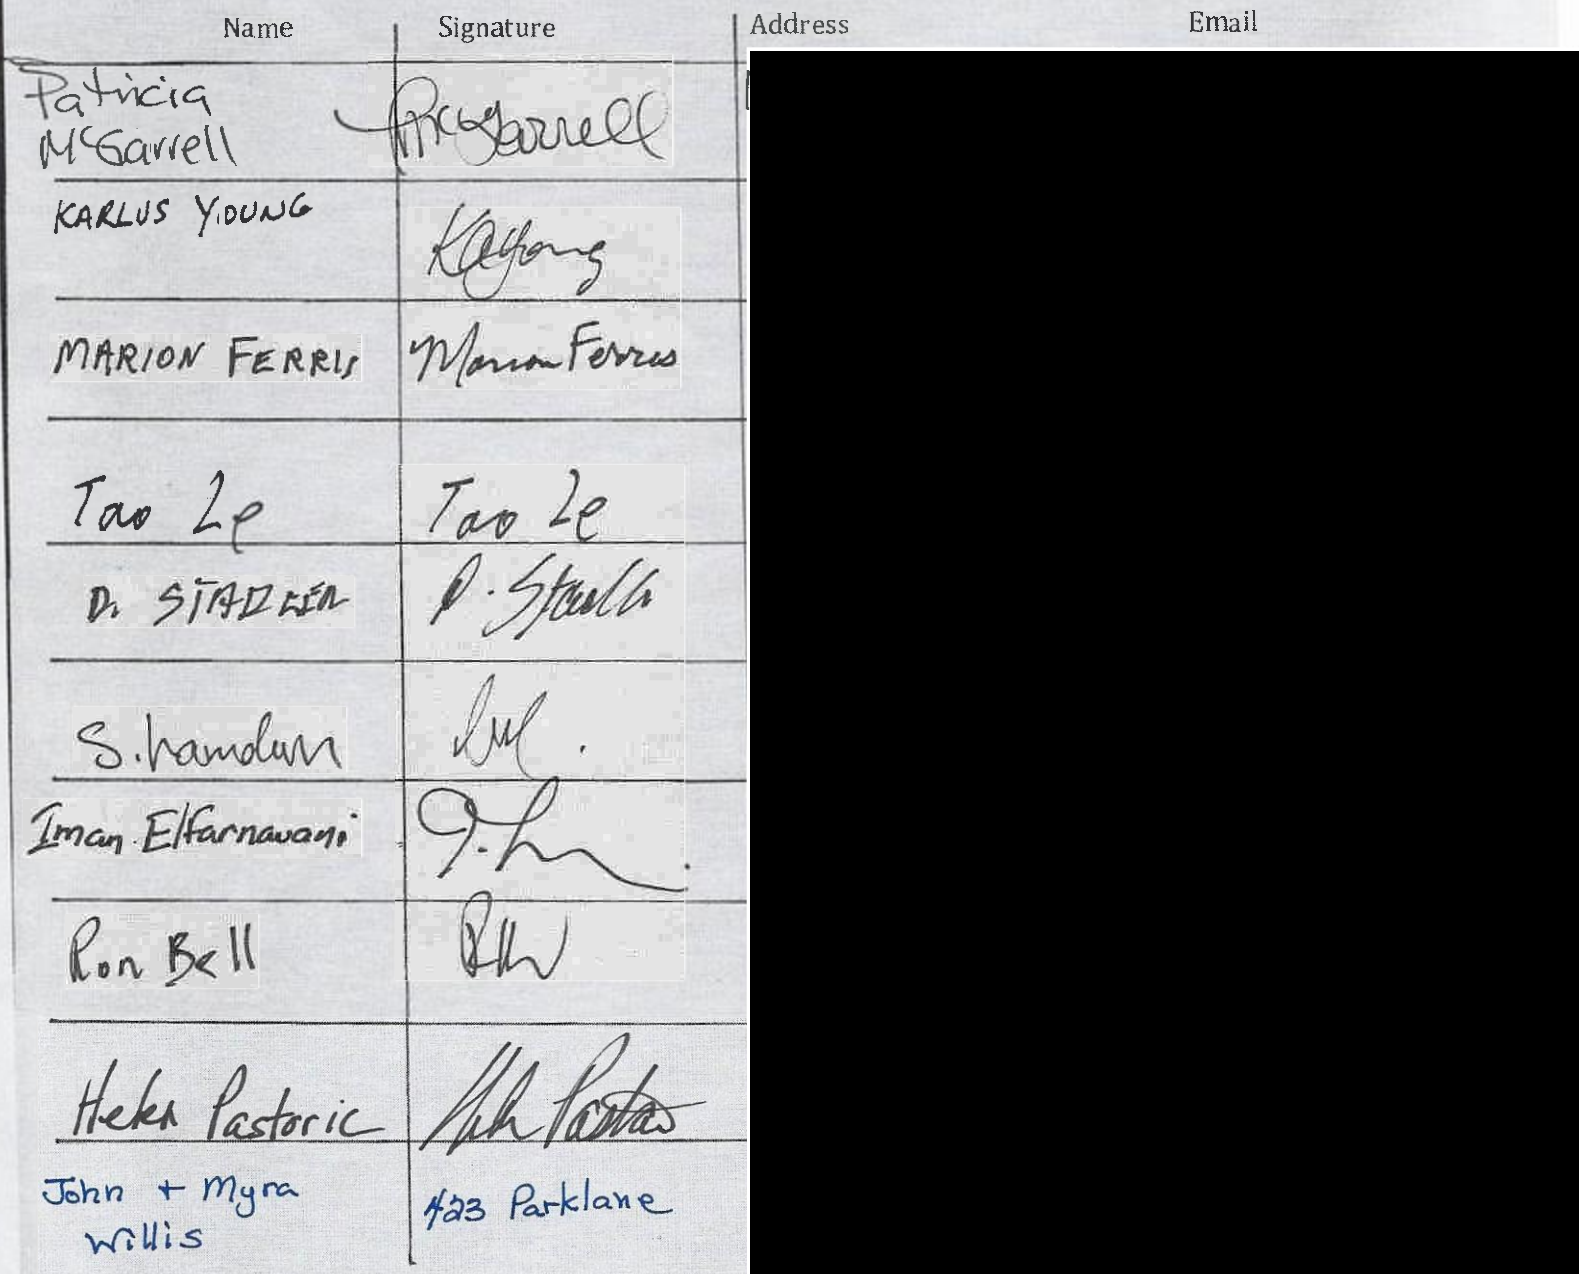 Name Signature Address Email
Patricia
McGarrell PMcGarrell
KARLUS YOUNG
KAYoung
MARION FERRIS Marion Ferris
Tao Le Tao Le
D. STADLER D.
S. hamdan
Iman Elfarnawani
Ron Bell
Helen Pastoric
John + Myra
423 Parklane
Willis